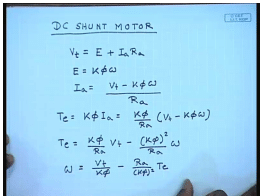 DC SHUNT MOTOR
Vt = E + Ia Ra
E = Kϕω
Ia = (Vt - Kϕω) / Ra
Te = Kϕ Ia = Kϕ/Ra (Vt - Kϕω)
Te = Kϕ/Ra Vt - (Kϕ)²/Ra ω
ω = Vt/Kϕ - Ra/(Kϕ)² Te